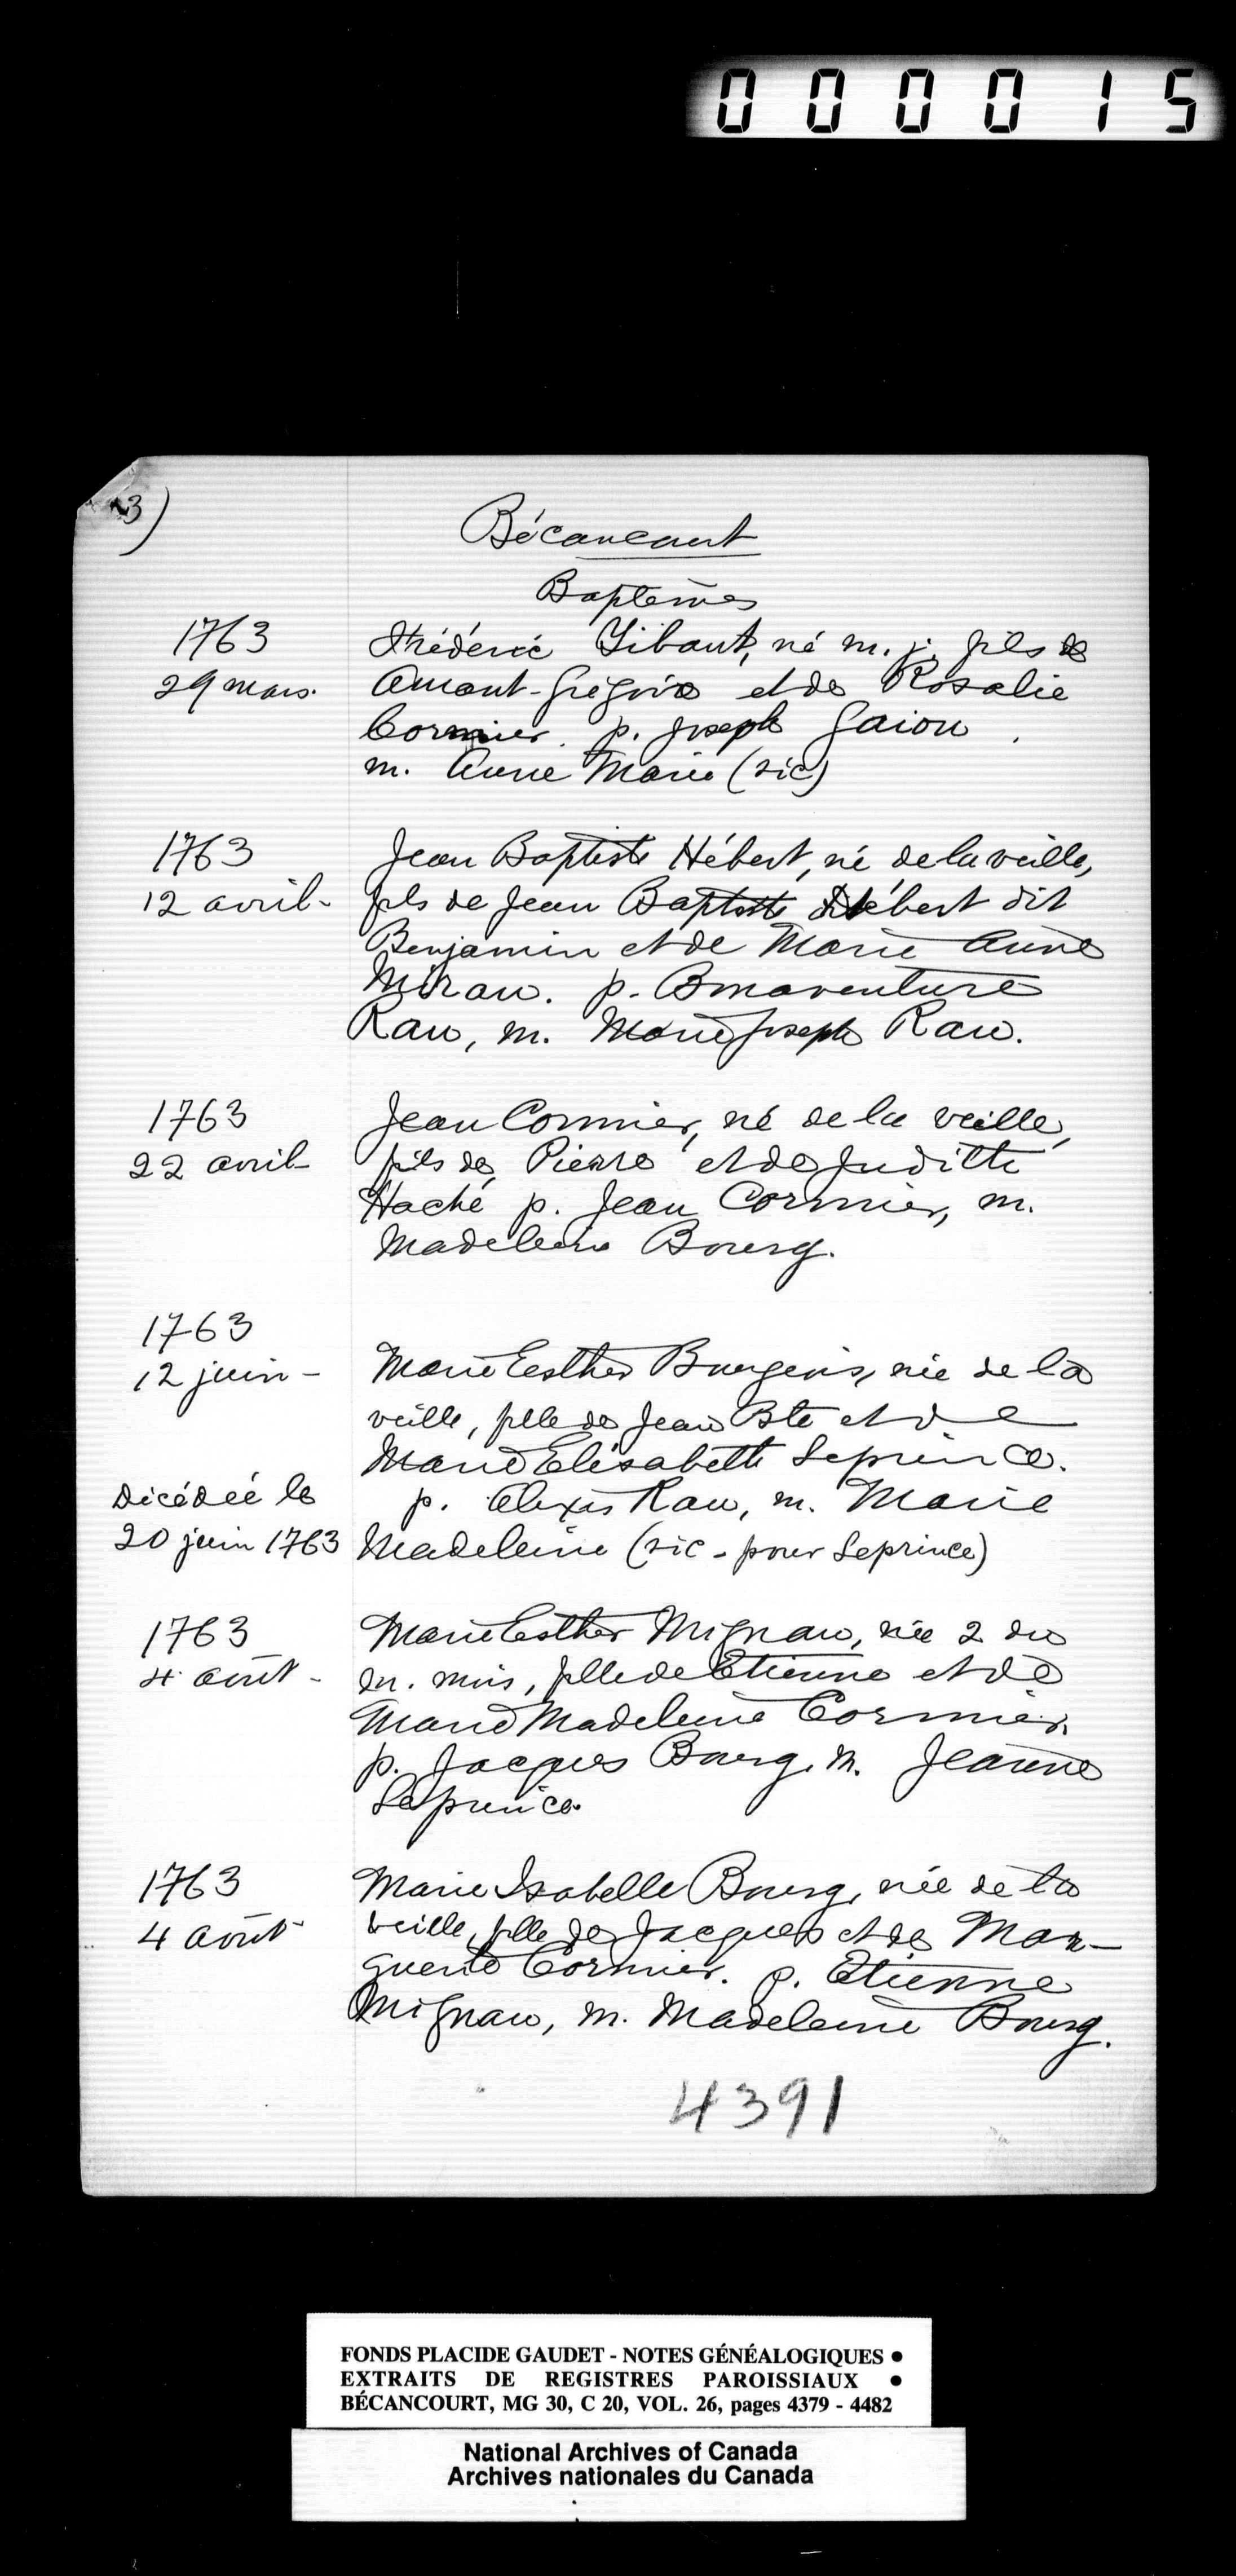 000015
13)
Bécancourt
Baptêmes
1763
29 mars.
Frédéric Thibaut, né m. j. fils de
Amant-Grégoire et de Rosalie
Cormier. p. Joseph Gaion.
m. Anne Marie (sic)
1763
12 avril -
Jean Baptiste Hébert, né de la veille,
fils de Jean Baptiste Hébert dit
Benjamin et de Marie Anne
Mirau. p. Bonaventure
Rau, m. Marie Joseph Rau.
1763
22 avril
Jean Cormier, né de la veille,
fils de Pierre et de Juditte
Haché p. Jean Cormier, m.
Madeleine Bourg.
1763
12 juin -
Marie Esther Bourgeois, née de la
veille, fille de Jean Bte et de
Marie Elisabette Leprince.
p. Alexis Rau, m. Marie
Madeleine (sic - pour Leprince)
Décédée le
20 juin 1763
1763
4 août -
Marie Esther Mignau, née 2 du
m. mois, fille de Etienne et de
Marie Madeleine Cormier.
p. Jacques Bourg, m. Jeanne
Leprince.
1763
4 août
Marie Isabelle Bourg, née de la
veille, fille de Jacques et de Mar-
guerite Cormier. p. Etienne
Mignau, m. Madeleine Bourg.
4391
FONDS PLACIDE GAUDET - NOTES GÉNÉALOGIQUES •
EXTRAITS DE REGISTRES PAROISSIAUX •
BÉCANCOURT, MG 30, C 20, VOL. 26, pages 4379 - 4482
National Archives of Canada
Archives nationales du Canada